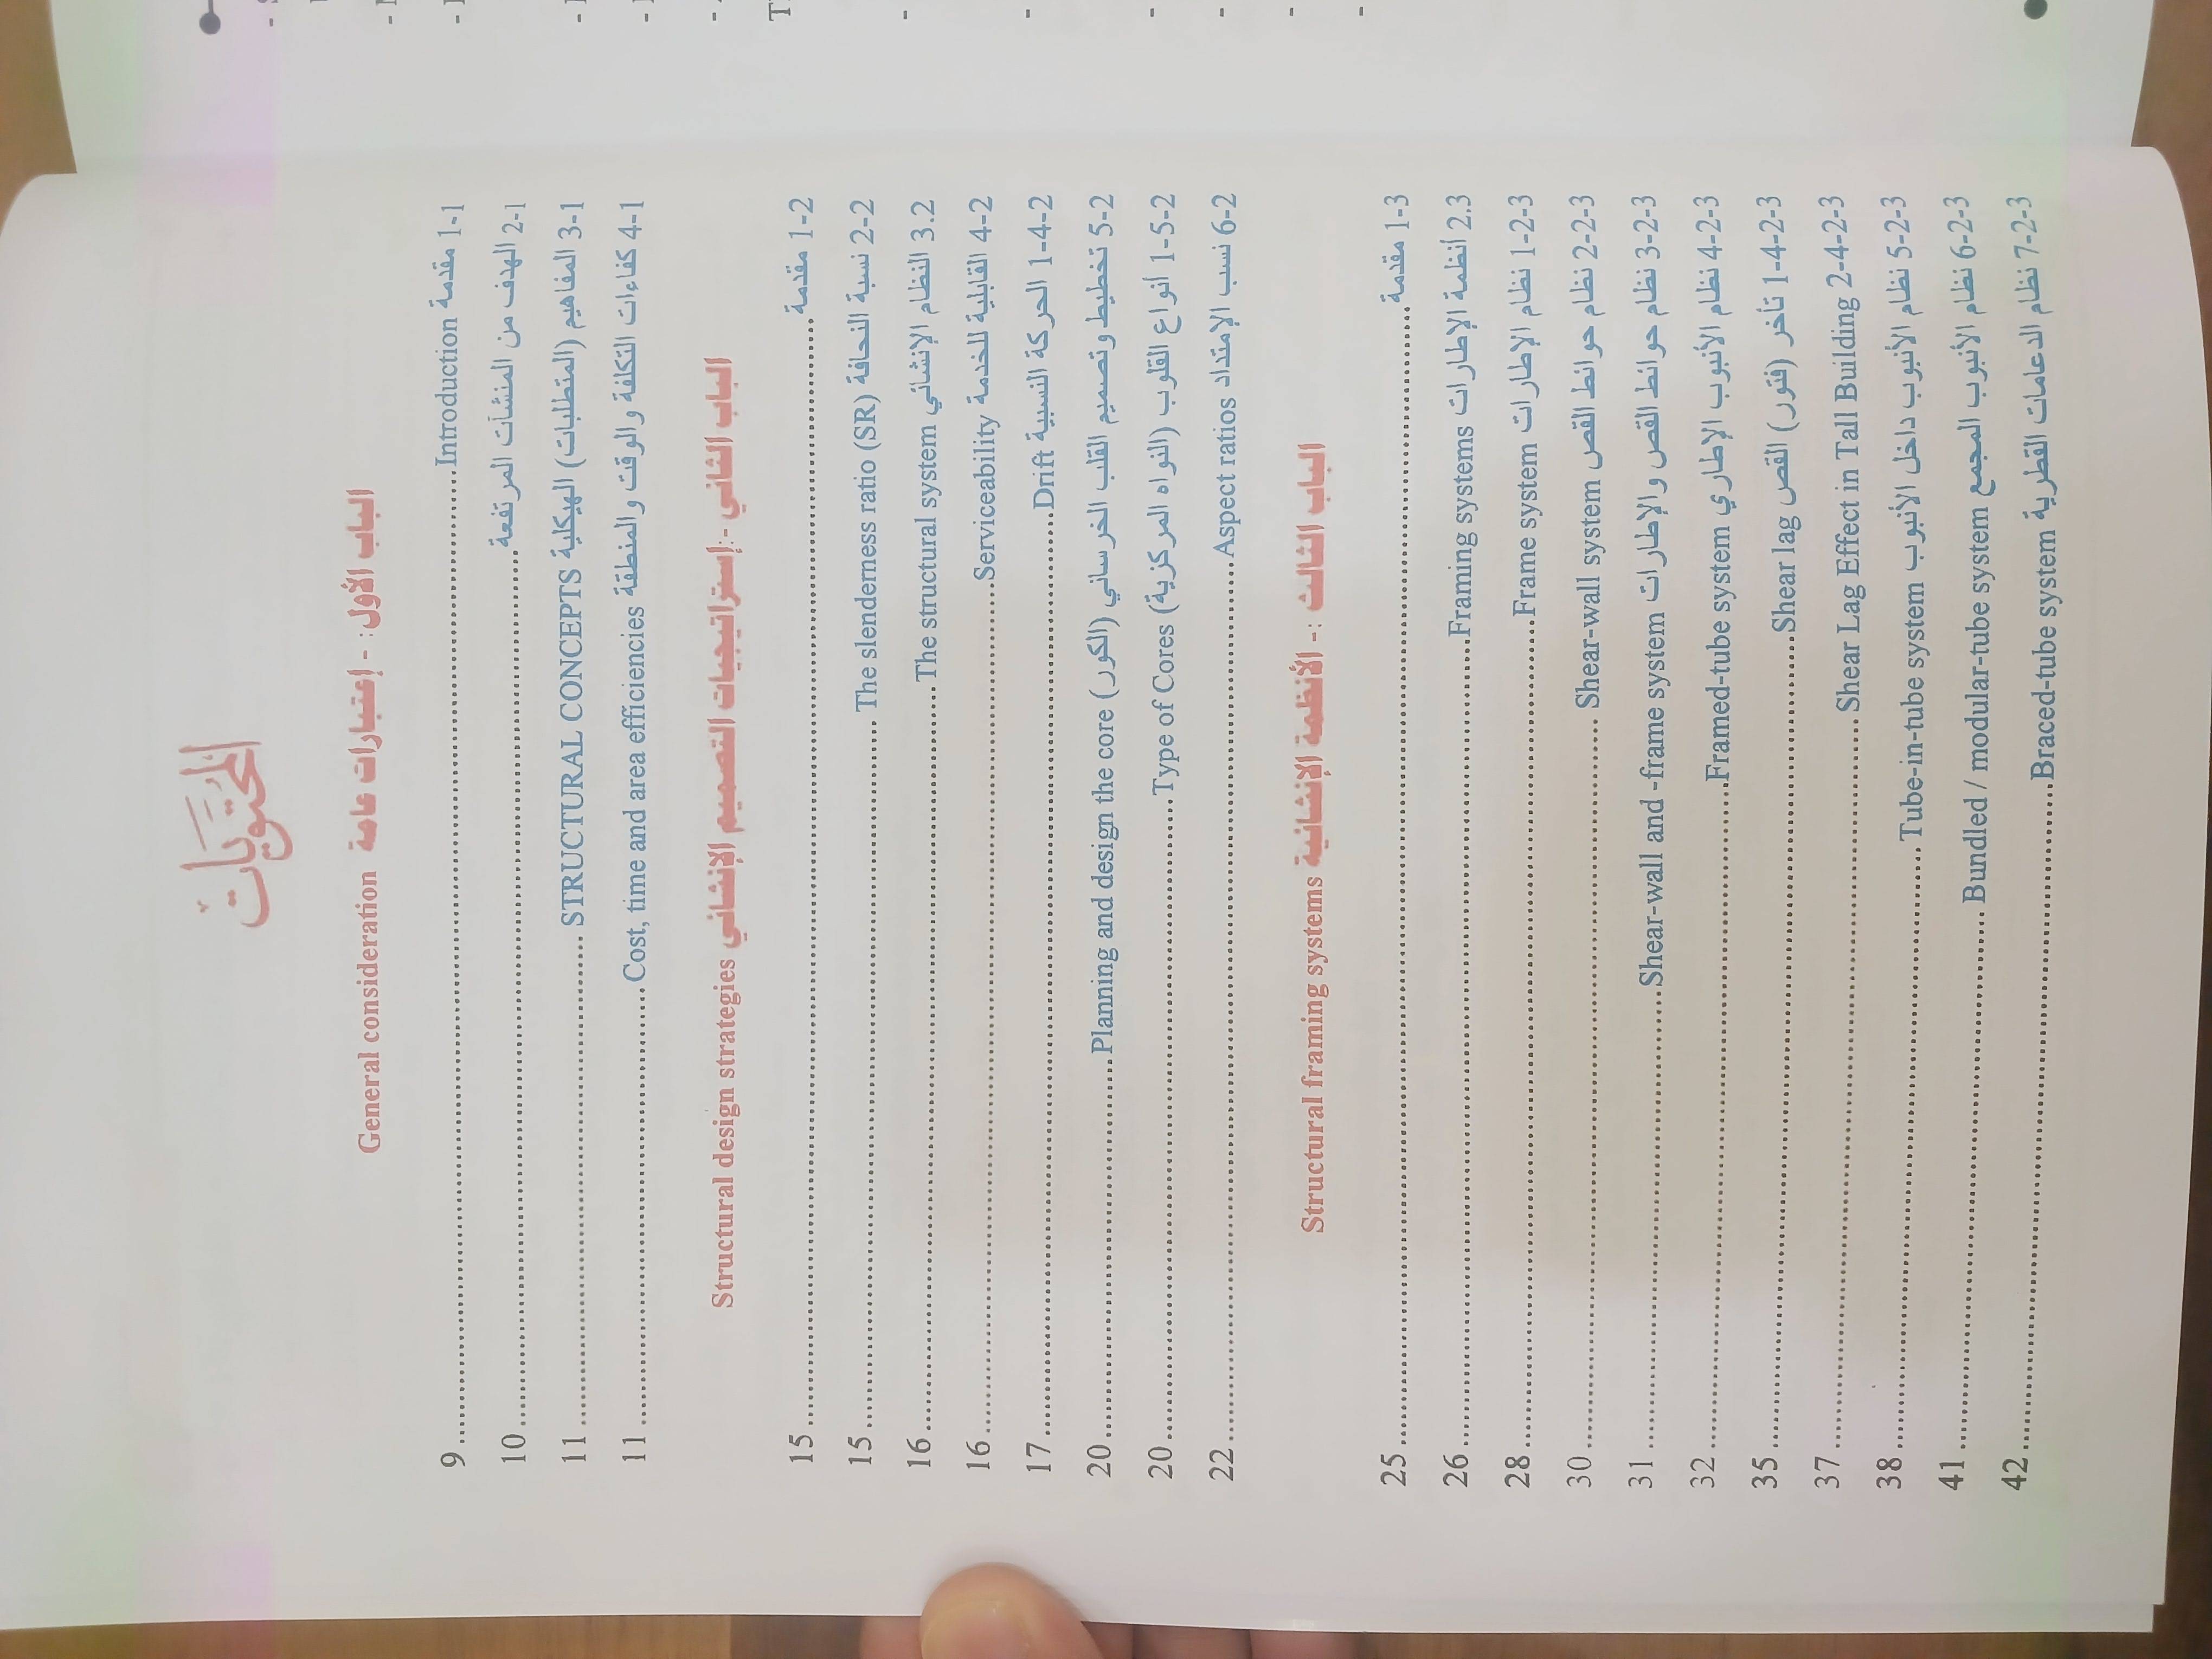 المحتويات
الباب الأول: - إعتبارات عامة General consideration
1-1 مقدمة Introduction................9
2-1 الهدف من المنشآت المرتفعة................10
3-1 المفاهيم (المتطلبات) الهيكلية STRUCTURAL CONCEPTS................11
4-1 كفاءات التكلفة والوقت والمنطقة Cost, time and area efficiencies................11
الباب الثاني -:إستراتيجيات التصميم الإنشائي Structural design strategies
1-2 مقدمة................15
2-2 نسبة النحافة The slenderness ratio (SR)................15
3.2 النظام الإنشائي The structural system................16
4-2 القابلية للخدمة Serviceability................16
1-4-2 الحركة النسبية Drift................17
5-2 تخطيط وتصميم القلب الخرساني (الكور) Planning and design the core................20
1-5-2 أنواع القلوب (النواه المركزية) Type of Cores................20
6-2 نسب الإمتداد Aspect ratios................22
الباب الثالث :- الأنظمة الإنشائية Structural framing systems
1-3 مقدمة................25
2.3 أنظمة الإطارات Framing systems................26
1-2-3 نظام الإطارات Frame system................28
2-2-3 نظام حوائط القص Shear-wall system................30
3-2-3 نظام حوائط القص والإطارات Shear-wall and -frame system................31
4-2-3 نظام الأنبوب الإطاري Framed-tube system................32
1-4-2-3 تأخر (فتور) القص Shear lag................35
2-4-2-3 Shear Lag Effect in Tall Building................37
5-2-3 نظام الأنبوب داخل الأنبوب Tube-in-tube system................38
6-2-3 نظام الأنبوب المجمع Bundled / modular-tube system................41
7-2-3 نظام الدعامات القطرية Braced-tube system................42